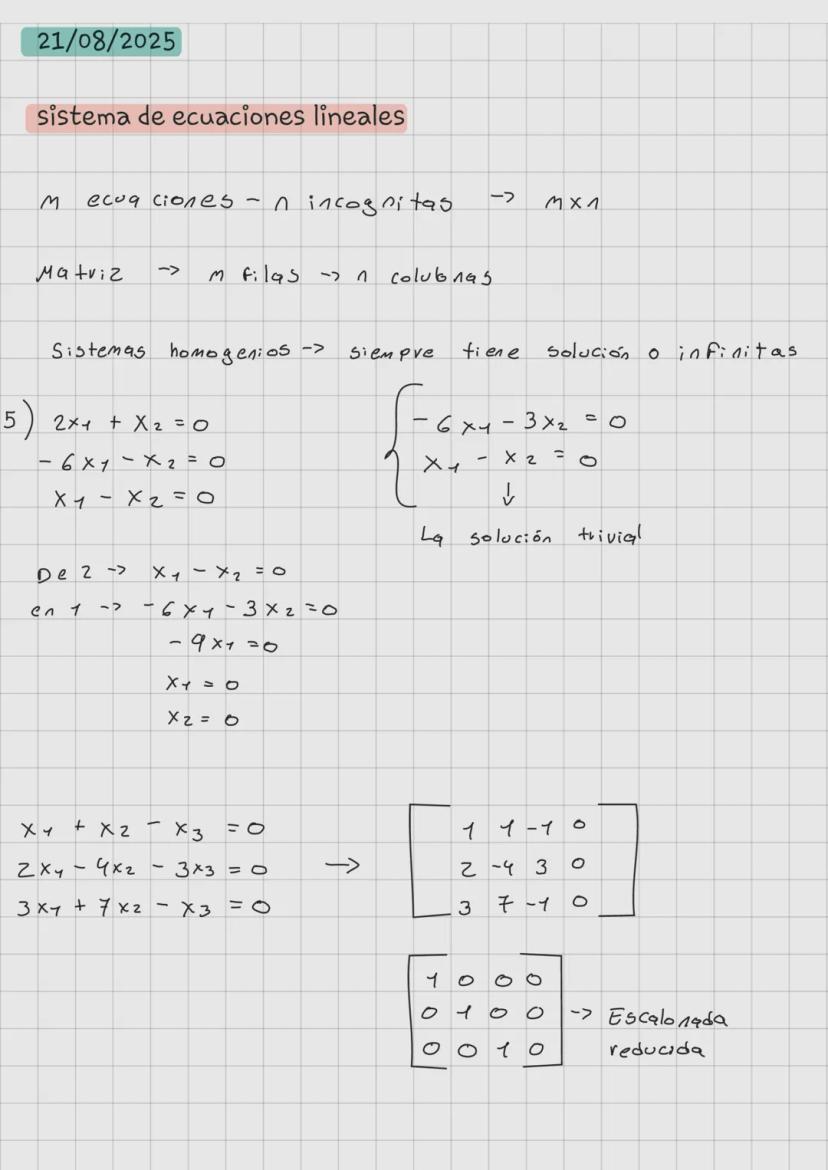 21/08/2025
sistema de ecuaciones lineales
m ecuaciones - n incognitas -> m x n
Matriz -> m filas -> n colubnas
Sistemas homogenios -> siempre tiene solución o infinitas
5) 2x1 + x2 = 0
- 6x1 - x2 = 0
x1 - x2 = 0
- 6x1 - 3x2 = 0
x1 - x2 = 0
↓
La solución trivial
De 2 -> x1 - x2 = 0
en 1 -> - 6x1 - 3x2 = 0
- 9x1 = 0
x1 = 0
x2 = 0
x1 + x2 - x3 = 0
2x1 - 4x2 - 3x3 = 0 →
3x1 + 7x2 - x3 = 0
1 1 -1 0
2 -4 3 0
3 7 -1 0
1 0 0 0
0 1 0 0 -> Escalonada
0 0 1 0 reducida